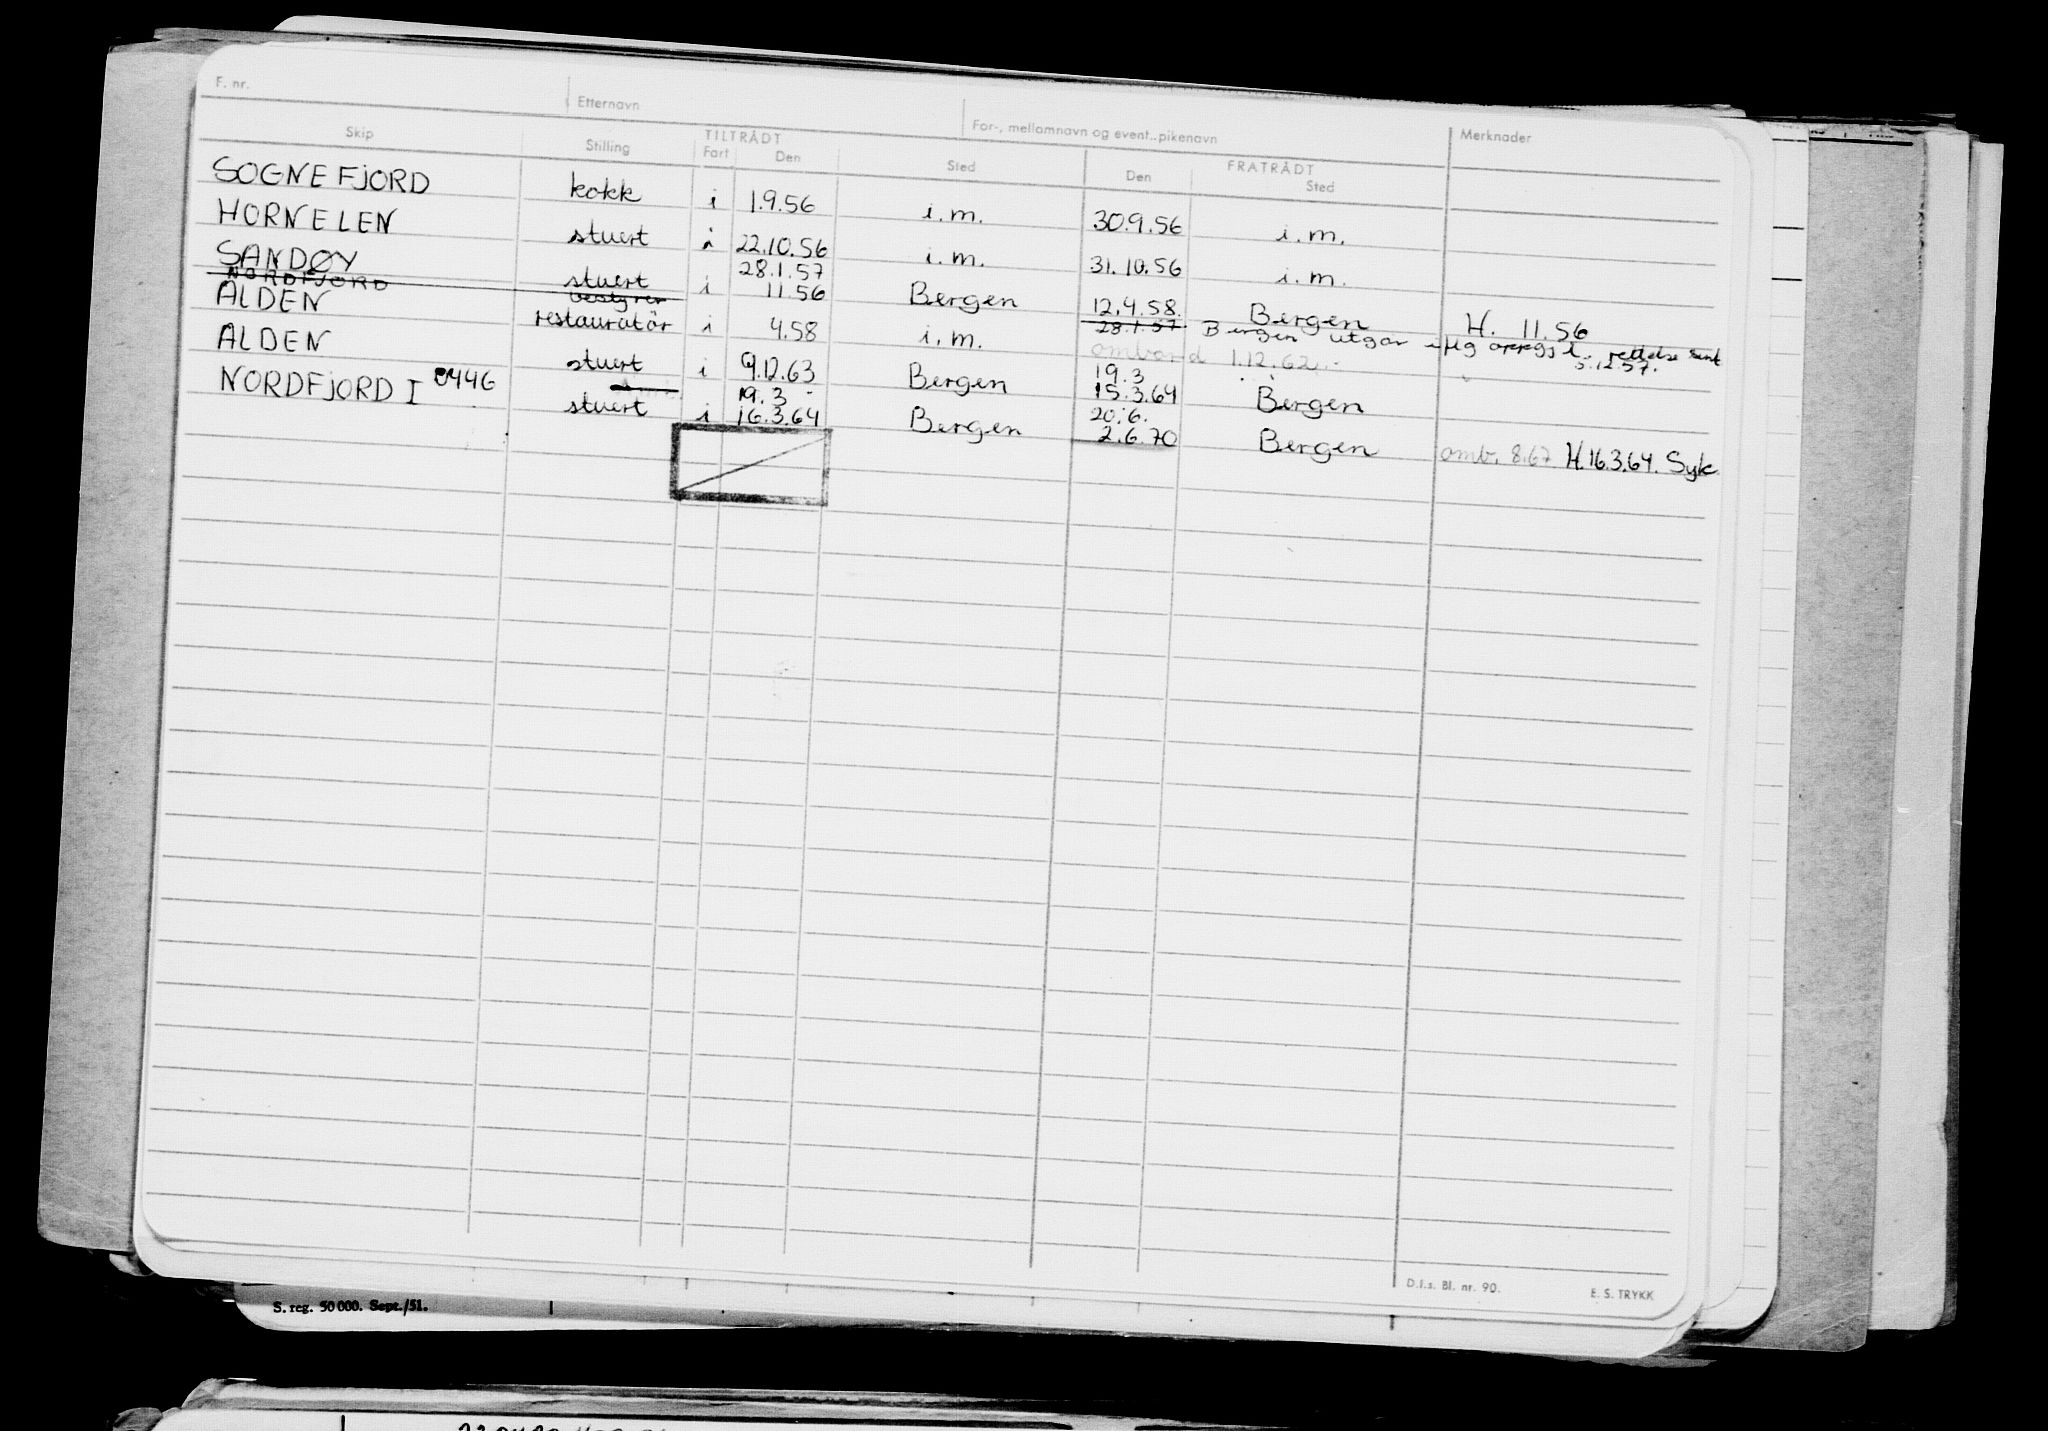 F. nr. Etternavn For-, mellomnavn og event. pikenavn Merknader
Skip Stilling TILTRÅDT FRATRÅDT
Fart Den Sted Den Sted
SOGNEFJORD kokk i 1.9.56 i.m. 30.9.56 i.m.
HORNELEN stuert i 22.10.56 i.m. 31.10.56 i.m.
SANDØY stuert i 28.1.57 Bergen 12.4.58. Bergen H. 11.56
NORDFJORD bestyrer 11.56 28.1.57 Bergen utgår rettelse
5.12.57.
ALDEN restauratör i 4.58 i.m. ombord 1.12.62
ALDEN stuert i 9.12.63 Bergen 19.3 15.3.64 Bergen
NORDFJORD I 0446 stuert i 19.3 16.3.64 Bergen 20.6. 2.6.70 Bergen omb. 8.67 H.16.3.64. Syk
D.I.s. Bl. nr. 90. E. S. TRYKK
S. reg. 50 000. Sept./51.